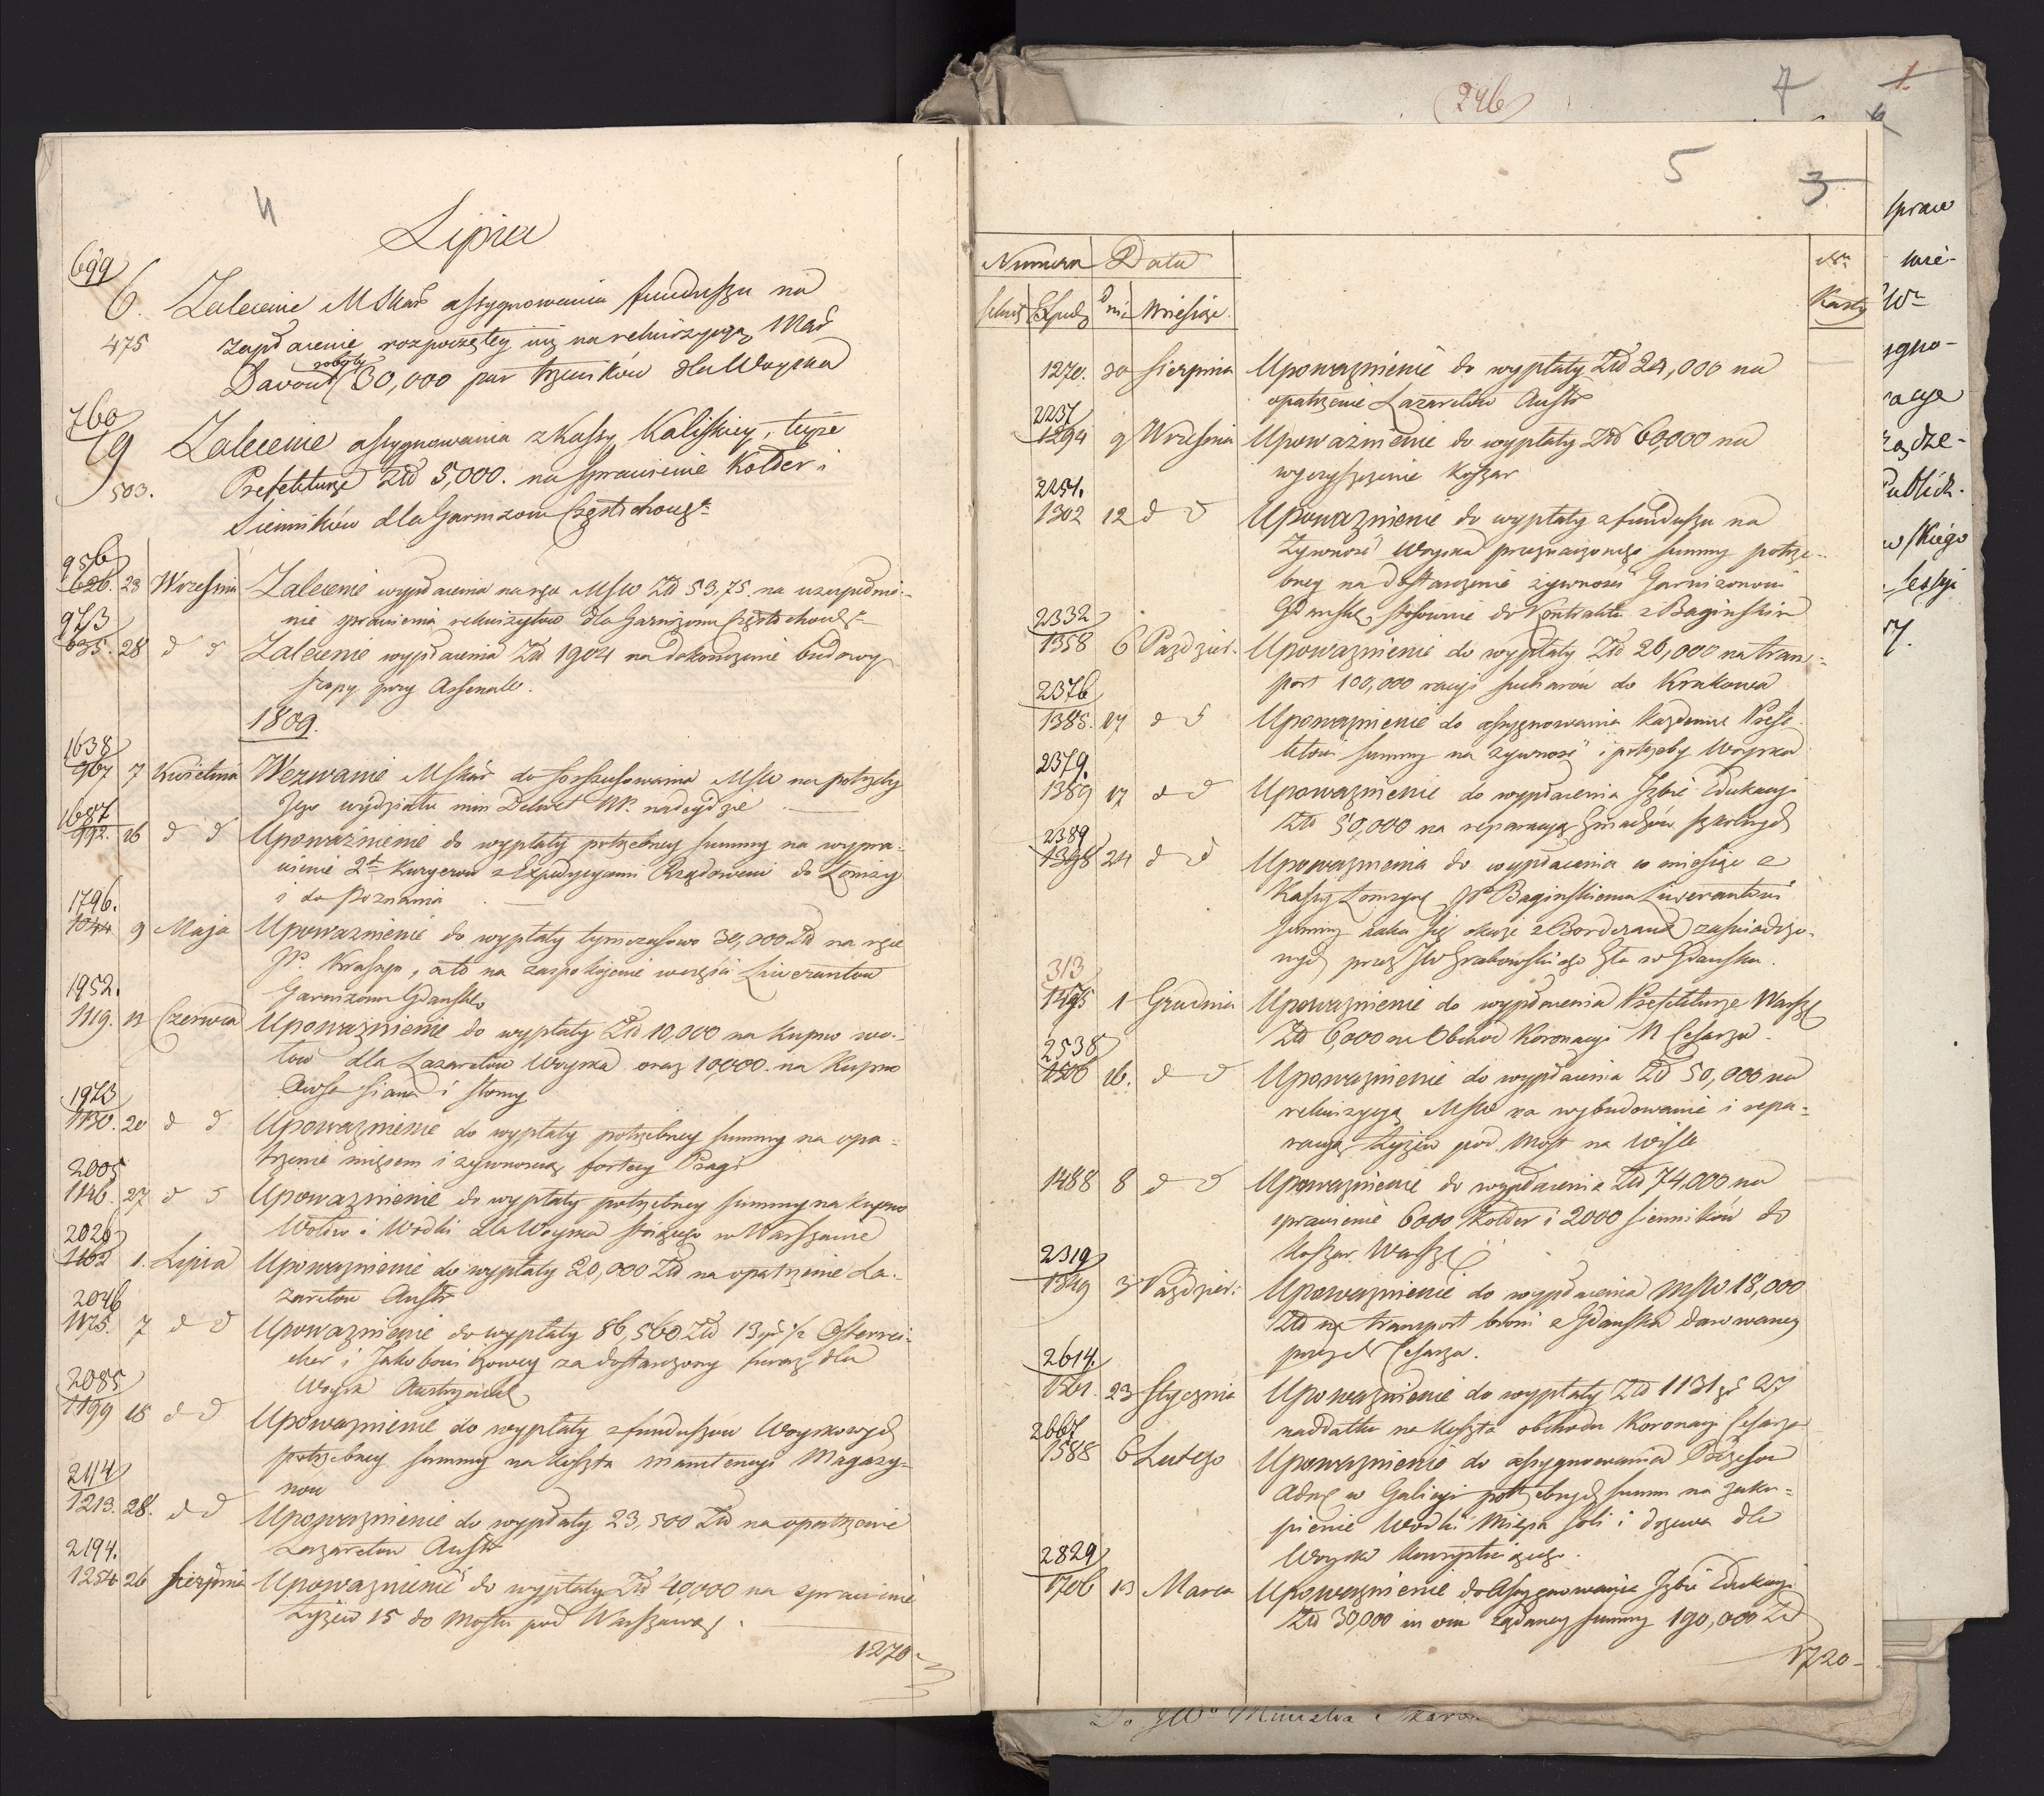 4
Lipca
699
6. Zalecenie MSkar assygnowania funduszu na
475 zapłacenie rozpoczętey iuż na rekwizycyą Mar
Davout roboty 30,000 par trzewików dla Woyska
760
19 Zalecenie assygnowania z Kassy Kaliskiey, teyże
503. Prefekturze Złd 5,000. na sprawienie Kołder i
Sienników dla Garnizonu Częstochows:
956
626. 23 Wrzesnia Zalecenie wypłacenia na rzecz MSW Złd 53,75. na uzupełnie-
nie sprawienia rekwizytow dla Garnizonu Częstochows:
973
635. 28 d d Zalecenie wypłacenia Złd 1904 na dokonczenie budowy
szopy przy Arsenale.
1809.
1638
967 7 Kwietnia Wezwanie MSkar do forszusowania MSW na potrzeby
Jego wydziału nim Dekret NP. nadeydzie
1687
992. 16 d d Upoważnienie do wypłaty potrzebney summy na wypra-
wienie 2ch Kuryerow z Expedycyami Rządowemi do Łomży
i do Poznania
1796.
1044 9 Maja Upoważnienie do wypłaty tymczasowo 30,000 Złd na ręce
, a to na zaspokojenie w części Liwerantow
Garnizonu Gdansk
1952.
1119. 13 Czerwca Upoważnienie do wypłaty Złd 10,000 na Kupno wo-
łow dla Lazaretow Woyska oraz 10,000. na Kupno
Owsa siana i słomy
1973
1130. 20 d d Upoważnienie do wypłaty potrzebney summy na opa-
trzenie mięsem i żywnoscią fortecy Pragi
2005
1146. 27 d d Upoważnienie do wypłaty potrzebney summy na kupno
Wołow i Wodki dla Woyska stoiącego w Warszawie
2026
1162 1. Lipca Upoważnienie do wypłaty 20,000 Złd na opatrzenie La-
zaretow Austr
2046
1175. 7 d d Upoważnienie do wypłaty 86,560 Złd 13 gr ½ Osterrei-
cher i Jakubowiczowey za dostarczony furaż dla
Woysk Austryiack
2085
1199 18 d d Upoważnienie do wypłaty z funduszow Woyskowych
potrzebney summy na koszta Magazy-
now
2114
1213. 28. d d Upoważnienie do wypłaty 23,500 Złd na opatrzenie
Lazaretow Austr
2194.
1254 26 sierpnia Upoważnienie do wypłaty Złd 40,000 na sprawienie
Łyżew 15 do Mostu pod Warszawą.
1270
246
7
1.
4
5
3
Numera Data Nro
Expedy dni Miesiąc Karty
1270. 30 sierpnia Upoważnienie do wypłaty Złd 24,000 na
opatrzenie Lazaretow Austr
2237
1294 9 Wrzesnia Upoważnienie do wypłaty Złd 60,000 na
wyczyszczenie Koszar
2251.
1302 12 d d Upoważnienie do wypłaty z funduszu na
Żywność Woyska przeznaczonego summy potrze-
bney na dostarczenie żywnosci Garnizonowi
Gdansk stosownie do Kontraktu z Baginskim
2332
1358 6 Paździer. Upoważnienie do wypłaty Złd 26,000 na tran-
sport 100,000 racyi sucharow do Krakowa
2376
1385. 17 d d Upoważnienie do assygnowania każdemu Prefe-
ktowi summy na żywność i potrzeby Woyska
2379.
1389 17 d d Upoważnienie do wypłacenia Izbie Edukacyi
Złd 50,000 na reparacyą Gmachów szkolnych
2389
1398 24 d d Upoważnienia do wypłacenia w miesiącu z
Kassy Łomżyns JP. Baginskiemu Liwerantowi
summy jaka się okaże z Borderaux zaświadczo-
nych przez JW Grabowskiego Gła w Gdansku.
313
1475 1 Grudnia Upoważnienie do wypłacenia Prefekturze Warsz
Złd 6,000 na Obchod Koronacyi N Cesarza.
2538
1506 16. d d Upoważnienie do wypłacenia Złd 50,000 na
rekwizycyą MSW na wybudowanie i repa-
racyą Łyżew pod Most na Wiśle
1488 8 d d Upoważnienie do wypłacenia Złd 74,000 na
sprawienie 6000 Kołder i 2000 sienników do
Koszar Warsz
2319
1349 3 Paździer: Upoważnienie do wypłacenia MSW 18,000
Złd na transport broni z Gdanska darowaney
przez N Cesarza.
2614.
1561. 23 Stycznia Upoważnienie do wypłaty Złd 1131 gr 27
naddatku na Koszta obchodu Koronacyi Cesarza
2667
1588 6 Lutego Upoważnienie do assygnowania Prezesom
Adm w Galicyi potrzebnych summ na zaku-
pienie Wodki Mięsa soli i drzewa dla
Woyska
2829
1706 13 Marca Upoważnienie do Assygnowania Izbie Edukacyi
Złd 30,000 in vim żądaney summy 190,000 Złd
1720
spraw
wie-
Wo
ygno-
racye
rządze-
Public.
w/kiego
Sessyi
Do JWo Ministra Skarbu